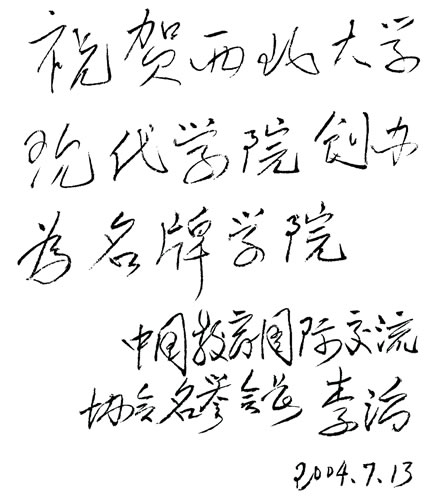 祝贺西北大学
现代学院创办
为名牌学院
中国教育国际交流
协会名誉会长 李滔
2004.7.13